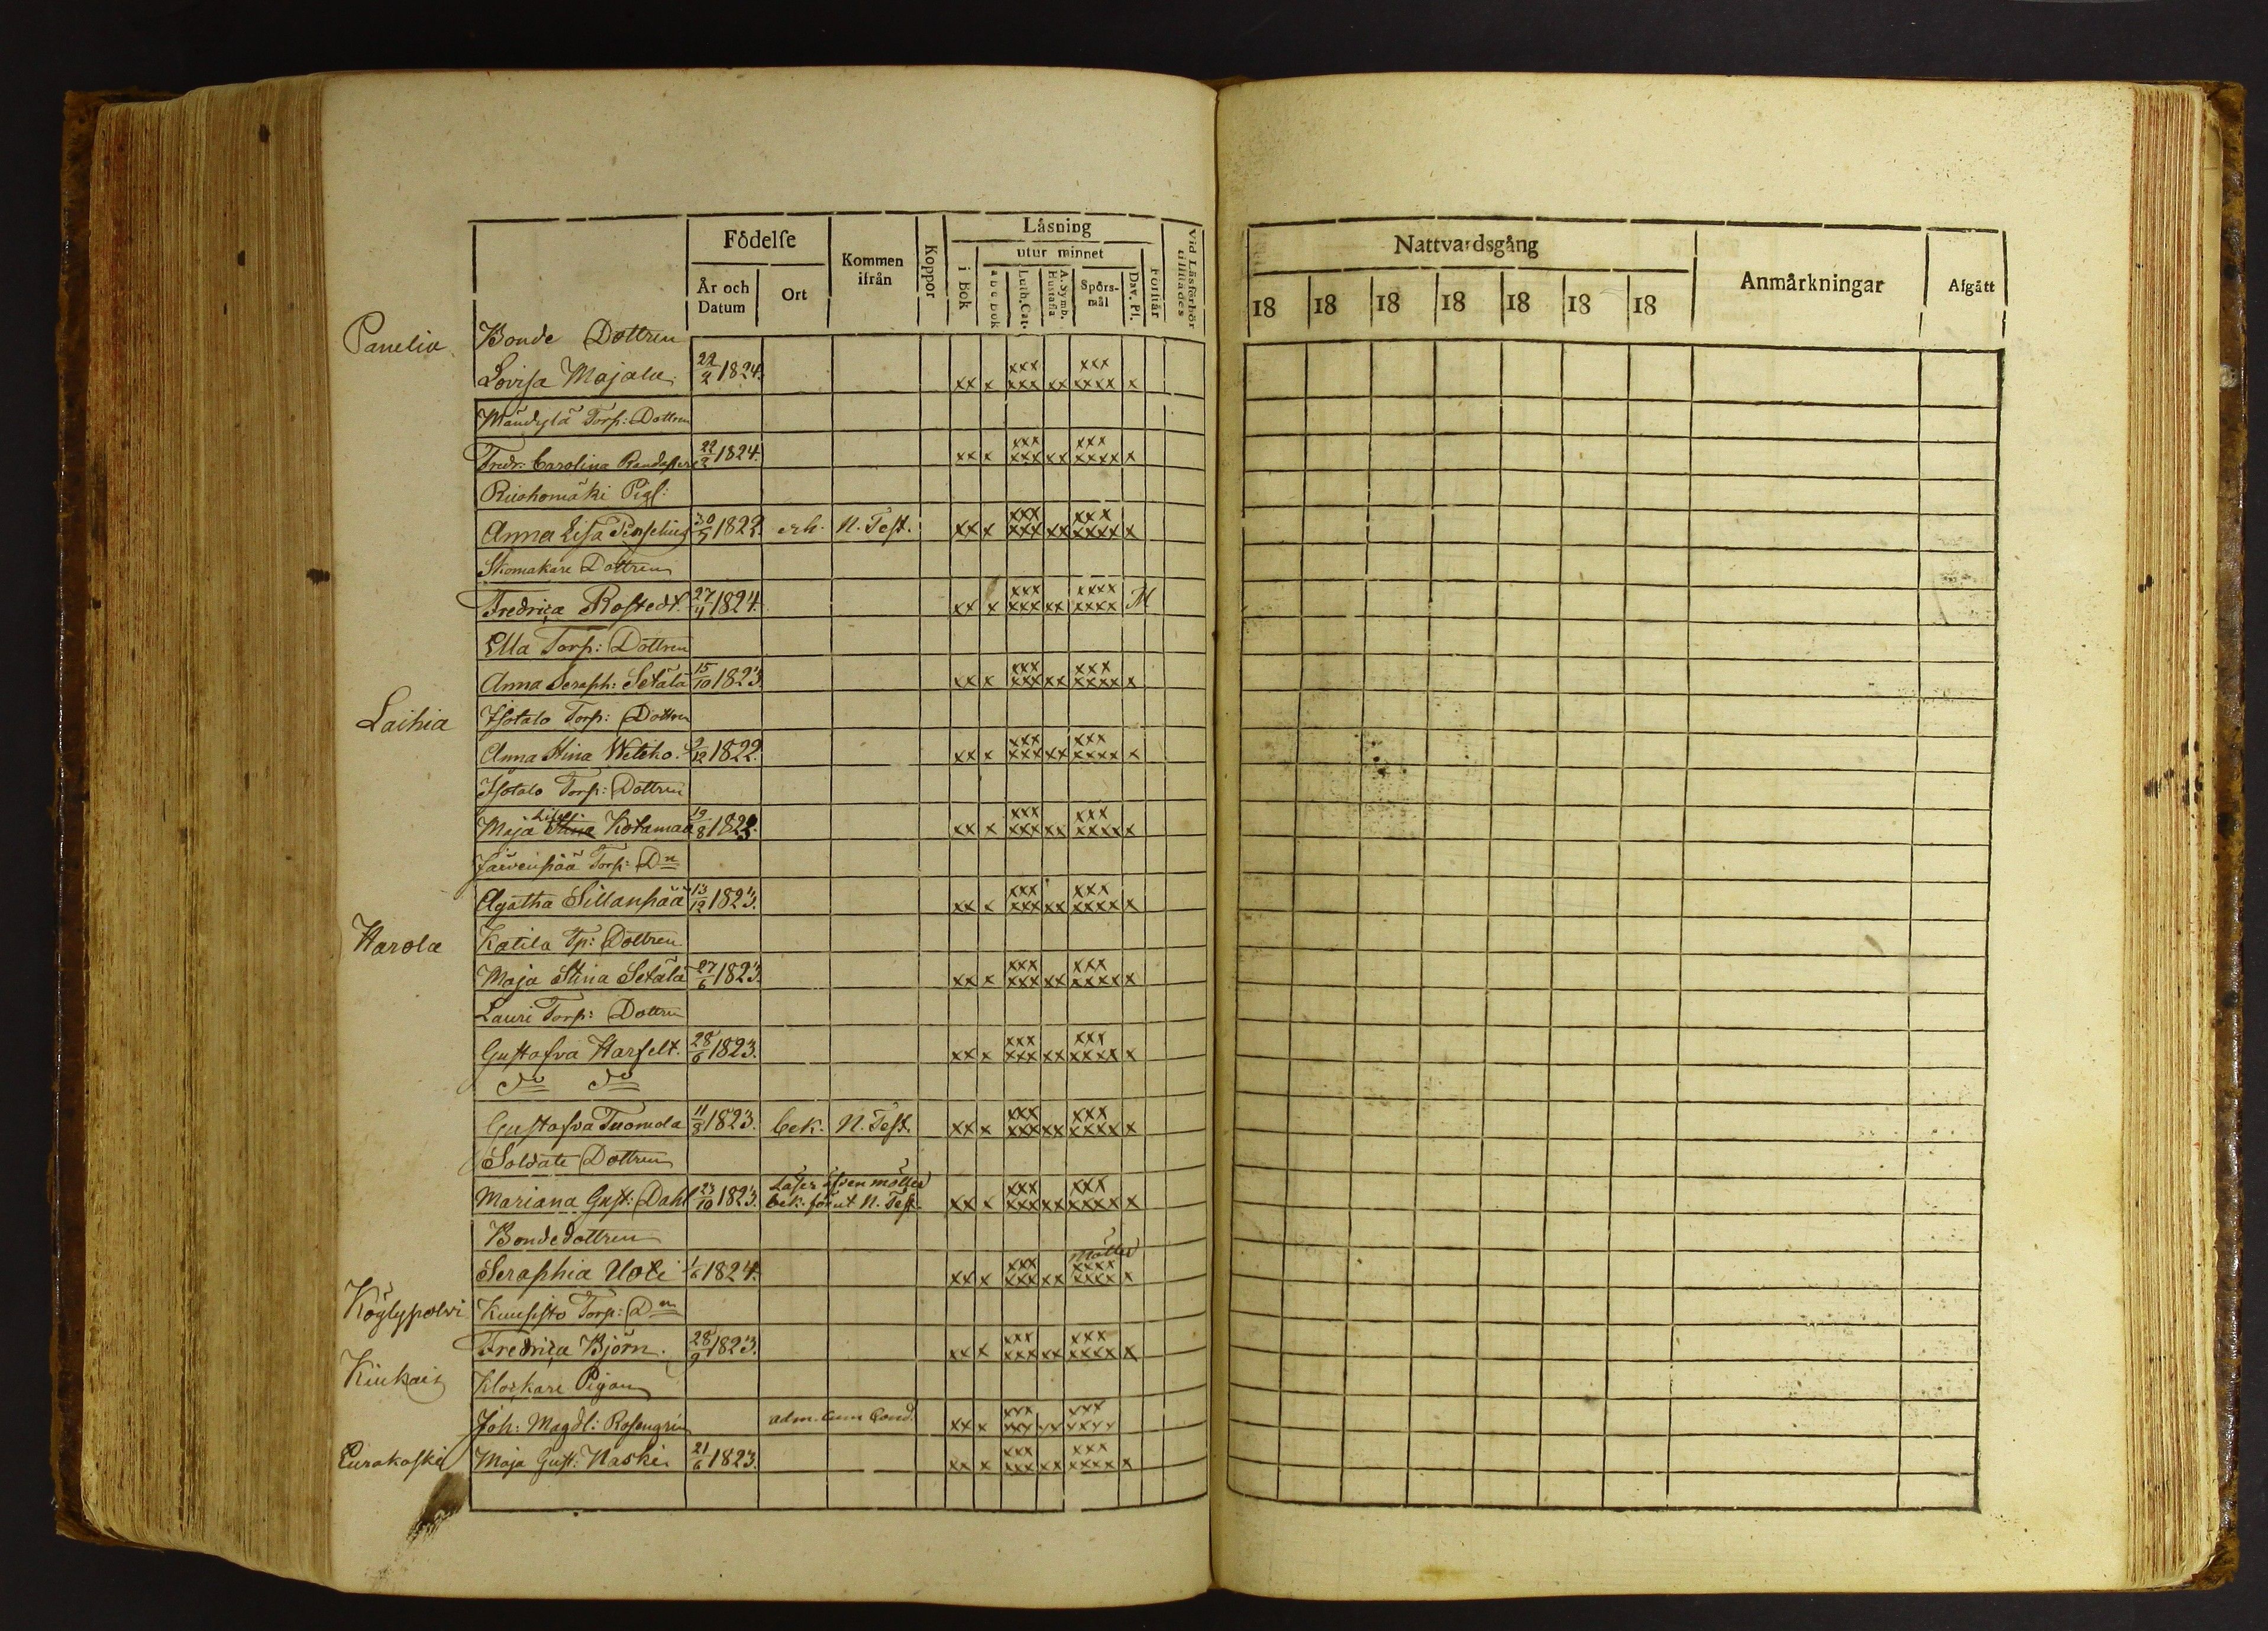 Födelse
Kommen ifrån
Koppor
Läsning
utur minnet
Vid Läsförhör tillstädes
År och Datum
Ort
i Bok
a b c Bok
Luth. Cat.
A. Symb. Hustafla
Spörs-mål
Dav. Pf.
Förstår
Nattvardsgång
Anmärkningar
Afgått
18 18 18 18 18 18 18
Panelia Bonde Dottren
Lovisa Majala 22/2 1824. xx x xxx xxx xx xxx xxxx x
Mäudylä Torp: Dottren
Fredr: Carolina 22/2 1824. xx x xxx xxx xx xxx xxxx x
Riiohomäki Pigl:
Anna Lisa 30/5 1822. erh. N. Test. xx x xxx xxx xx xxx xxxxx x
Skomakare Dottren
Fredrica Rostedt. 27/4 1824. xx x xxx xxx xx xxxx xxxx M
Ella Torp: Dottren
Anna Seraph: Setälä 15/10 1823 xx x xxx xxx xx xxx xxxxx x
Laihia Isotalo Torp: Dottren
Anna Stina 9/12 1822. xx x xxx xxx xx xxx xxxx x
Isotalo Torp: Dottren
Maja Stina Lisa Kotamaa 19/8 1823. xx x xxx xxx xx xxx xxxxx x
Järvenpää Torp: Dn
Agatha Sillanpää 13/12 1823. xx x xxx xxx xx xxx xxxxx x
Harola Katila Tp: Dottren
Maja Stina Setälä 27/6 1823. xx x xxx xxx xx xxx xxxxx x
Lauri Torp: Dottren
Gustafva Harfelt. 28/6 1823. xx x xxx xxx xx xxx xxxxx x
do do
Gustafva Tuomola 11/8 1823. bek. N. Test. xx x xxx xxx xx xxx xxxxx x
Soldate Dottren
Mariana Gust: Dahl 23/10 1823. Läser
bek. förut N. Test. xx x xxx xxx xx xxx xxxxx x
Bonde dottren
Seraphia Uoti 1/6 1824. xx x xxx xxx xx xxxx xxxx x
Köylypolvi Kuusisto Torp: Dn
Fredrica Björn. 28/9 1823. xx x xxx xxx xx xxx xxxx x
Kiukais Klockare Pigan
Joh: Magdl: Rosengrén adm. cum Cond. xx x xxx xxx xx xxx xxxx
Eurakoski Maja Gust: Naski 21/6 1823. xx x xxx xxx xx xxx xxxx x